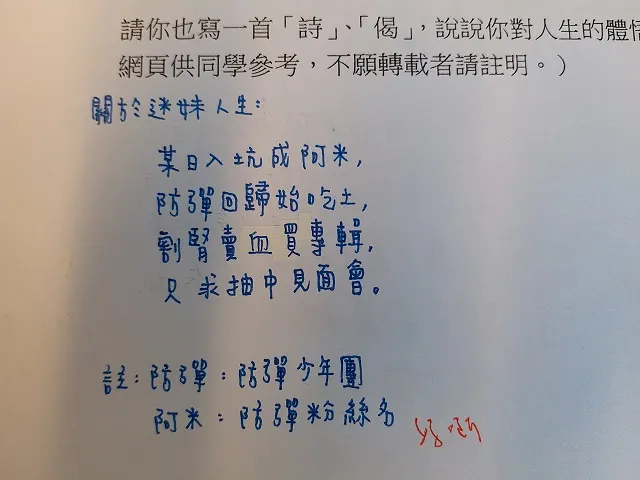 請你也寫一首「詩」、「偈」，說說你對人生的體悟
網頁供同學參考，不願轉載者請註明。）
關於迷妹人生：
某日入坑成阿米，
防彈回歸始吃土，
割腎賣血買專輯，
只求抽中見面會。
註：防彈：防彈少年團
阿米：防彈粉絲名